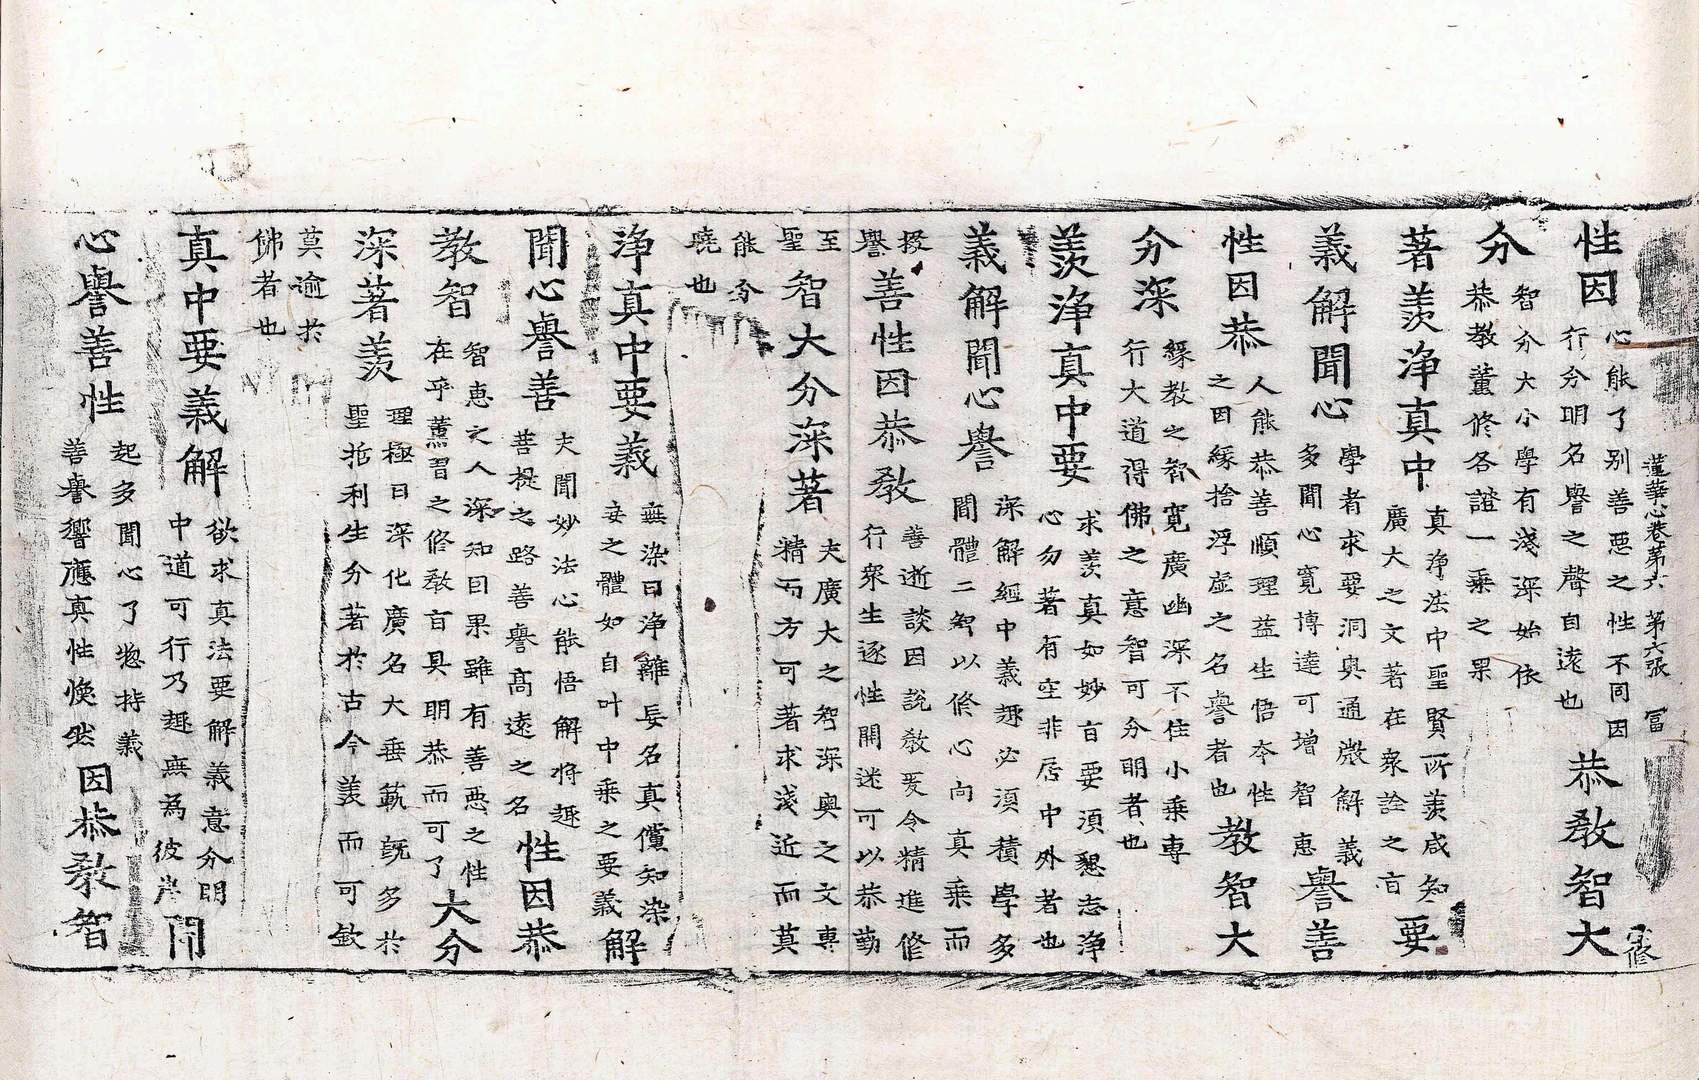 蓮華心卷第六 第六張 冨
性因 心能了别善惡之性不同因行分明名譽之聲自遠也 恭教智大
分 智分大小學有淺深始依恭教薰修各證一乘之果
著羨淨真中 真淨法中聖賢所羨咸知廣大之文著在衆詮之言 要
義解聞心 學者求要洞奥通微解義多聞心寬博達可增智惠 譽善
性因恭 人能恭善順理益生悟本性之因緣捨浮虛之名譽者也 教智大
分深 緣教之智寬廣幽深不住小乘專行大道得佛之意智可分明者也
羨淨真中要 求羨真如妙言要須懇志淨心勿著有空非居中外者也
義解聞心譽 深解經中義趣必須積學多聞體二智以修心向真乘而
投譽 善性因恭教 善逝談因說教爰令精進修行衆生逐性開迷可以恭勤
至聖 智大分深著 夫廣大之智深奥之文專精而方可著求淺近而莫
能分曉也
淨真中要義 無染曰淨離妄名真儻知染妄之體如自叶中乘之要義 解
聞心譽善 夫聞妙法心能悟解將趣菩提之路善譽高遠之名 性因恭
教智 智惠之人深知因果雖有善惡之性在乎薰習之修教言具明恭而可了 大分
深著羨 理極曰深化廣名大垂軌既多於聖括利生分著於古今羨而可欽
莫逾於佛者也
真中要義解 欲求真法要解義意分明中道可行乃趣無為彼岸 聞
心譽善性 起多聞心了惣持義善譽響應真性煥然 因恭教智